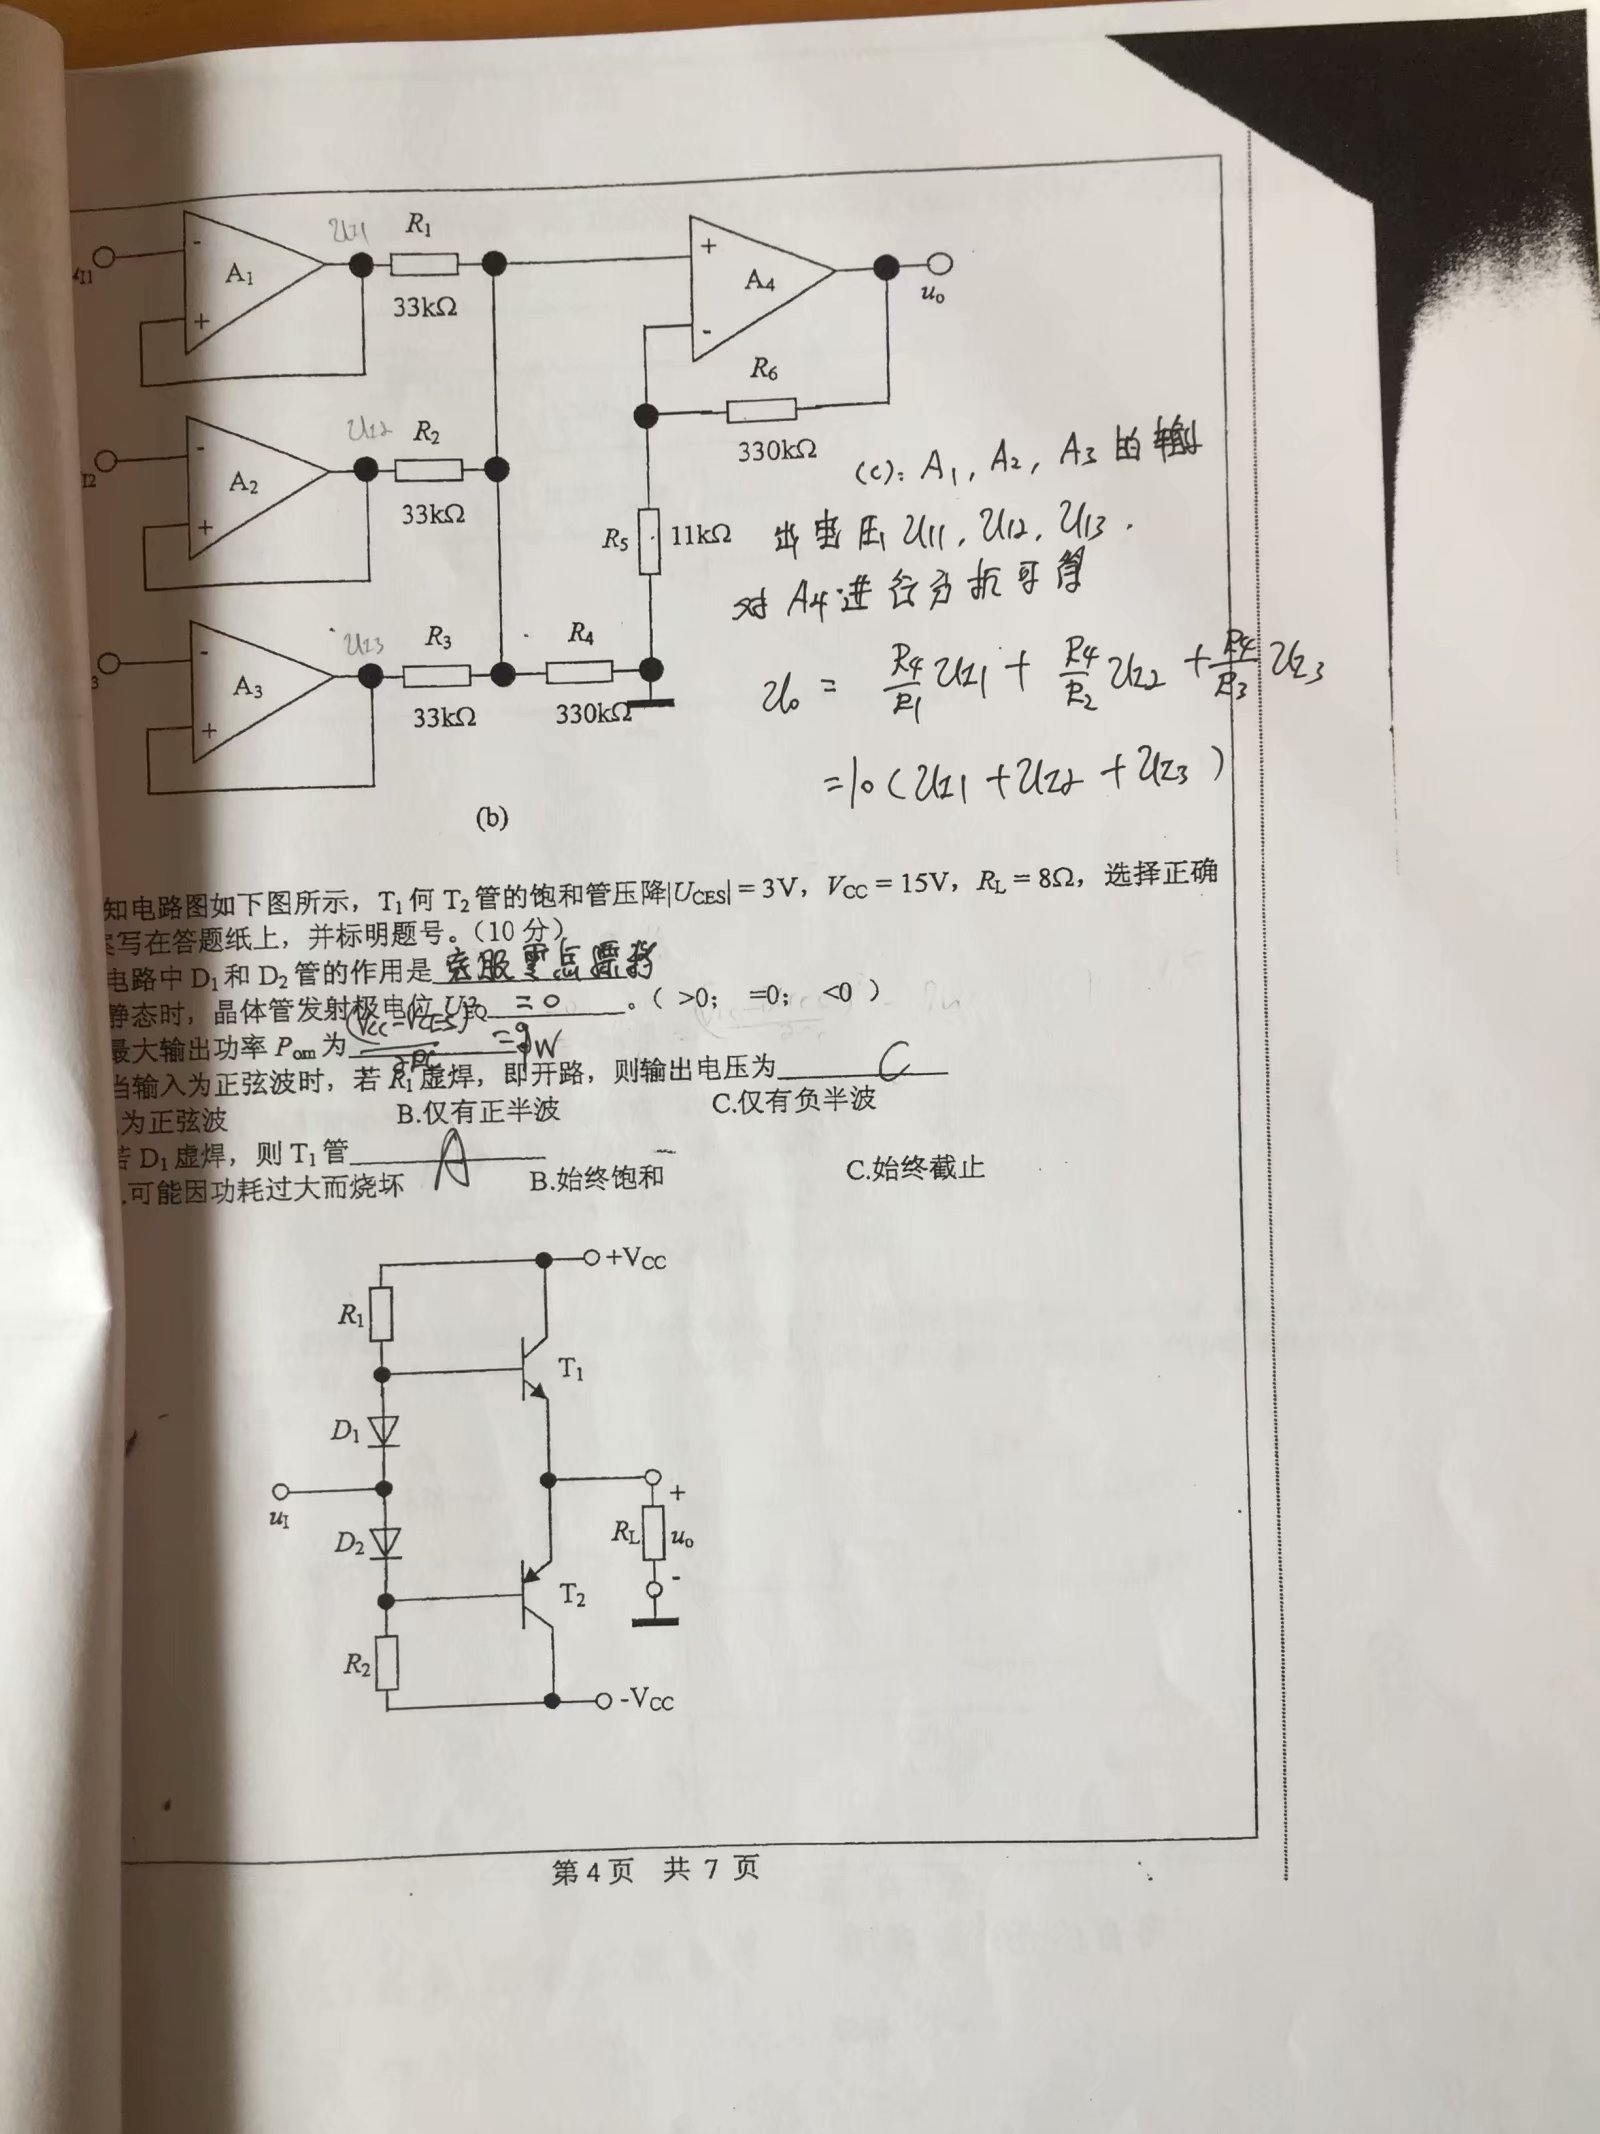 I1
A₁
-
+
u_I1
R₁
33kΩ
+
A₄
-
u₀
R₆
330kΩ
I2
A₂
-
+
u_I2
R₂
33kΩ
R₅
11kΩ
3
A₃
-
+
u_I3
R₃
33kΩ
R₄
330kΩ
(c): A₁, A₂, A₃的输
出电压 u_I1, u_I2, u_I3.
对A₄进行分析可得
u₀ = R₄/R₁ u_I1 + R₄/R₂ u_I2 + R₄/R₃ u_I3
=10(u_I1+u_I2+u_I3)
(b)
知电路图如下图所示，T₁何T₂管的饱和管压降|U_CES|=3V，V_CC=15V，R_L=8Ω，选择正确
写在答题纸上，并标明题号。（10分）
电路中D₁和D₂管的作用是 克服零点漂移
静态时，晶体管发射极电位U_EQ =0 。（ >0； =0； <0 ）
最大输出功率P_om为 (V_CC-V_CES)²/2R_L =9W
当输入为正弦波时，若R₁虚焊，即开路，则输出电压为 C
为正弦波 B.仅有正半波 C.仅有负半波
若D₁虚焊，则T₁管 A
.可能因功耗过大而烧坏 B.始终饱和 C.始终截止
+V_CC
R₁
T₁
D₁
u_I
D₂
+
R_L
u₀
-
T₂
R₂
-V_CC
第4页 共7页